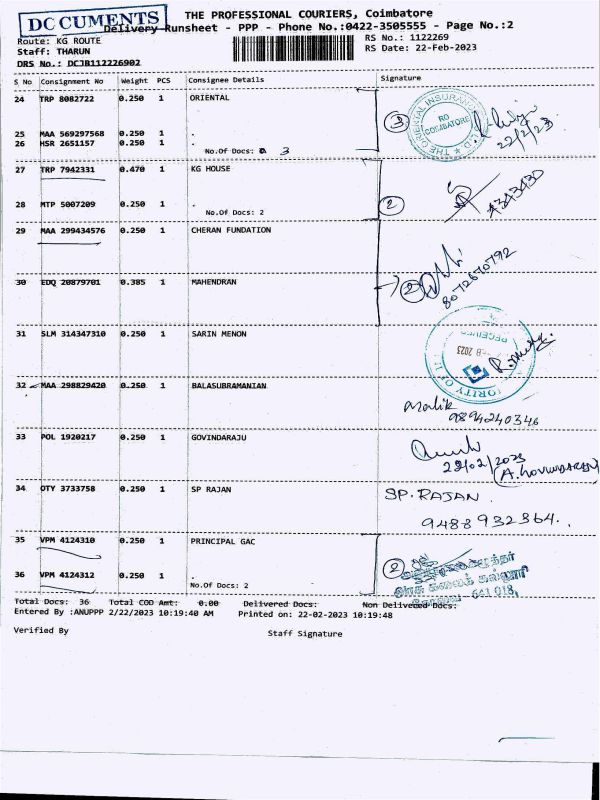 DOCUMENTS
THE PROFESSIONAL COURIERS, Coimbatore
Delivery Runsheet - PPP - Phone No.:0422-3505555 - Page No.:2
Route: KG ROUTE
RS No.: 1122269
Staff: THARUN
RS Date: 22-Feb-2023
DRS No.: DCJB112226902
S No Consignment No Weight PCS Consignee Details Signature
24 TRP 8082722 0.250 1 ORIENTAL
THE ORIENTAL INSURANCE
RO
COIMBATORE
3
22/2/23
25 MAA 569297568 0.250 1 .
26 HSR 2651157 0.250 1 .
No.Of Docs: 3
27 TRP 7942331 0.470 1 KG HOUSE
28 MTP 5007209 0.250 1 .
No.Of Docs: 2
2
29 MAA 299434576 0.250 1 CHERAN FUNDATION
30 EDQ 20879701 0.385 1 MAHENDRAN
2
8072670792
31 SLM 314347310 0.250 1 SARIN MENON
RECEIVED
2023
32 MAA 298829420 0.250 1 BALASUBRAMANIAN
Malik
9894240346
33 POL 1920217 0.250 1 GOVINDARAJU
22/02/2023
34 OTY 3733758 0.250 1 SP RAJAN
SP. RAJAN
9488932364
35 VPM 4124310 0.250 1 PRINCIPAL GAC
36 VPM 4124312 0.250 1 .
No.Of Docs: 2
2
அரசு கலைக் கல்லூரி
641 018
Total Docs: 36 Total COD Amt: 0.00 Delivered Docs: Non Delivered Docs:
Entered By :ANUPPP 2/22/2023 10:19:40 AM Printed on: 22-02-2023 10:19:48
Verified By Staff Signature